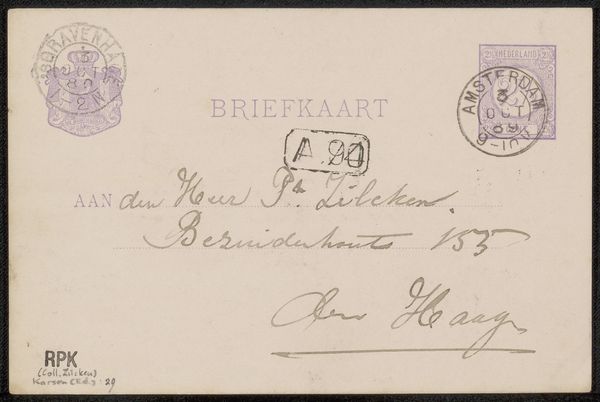 'SGRAVENHAGE
3
OCT
89
2½ NEDERLAND 2½
AMSTERDAM
3
OCT
89
9-10V
BRIEFKAART
A.94
AAN den Heer Ph Zilcken.
Bezuidenhouts 155
den Haag
RPK
(Coll. Zilcken)
Karsen (Ed.): 29